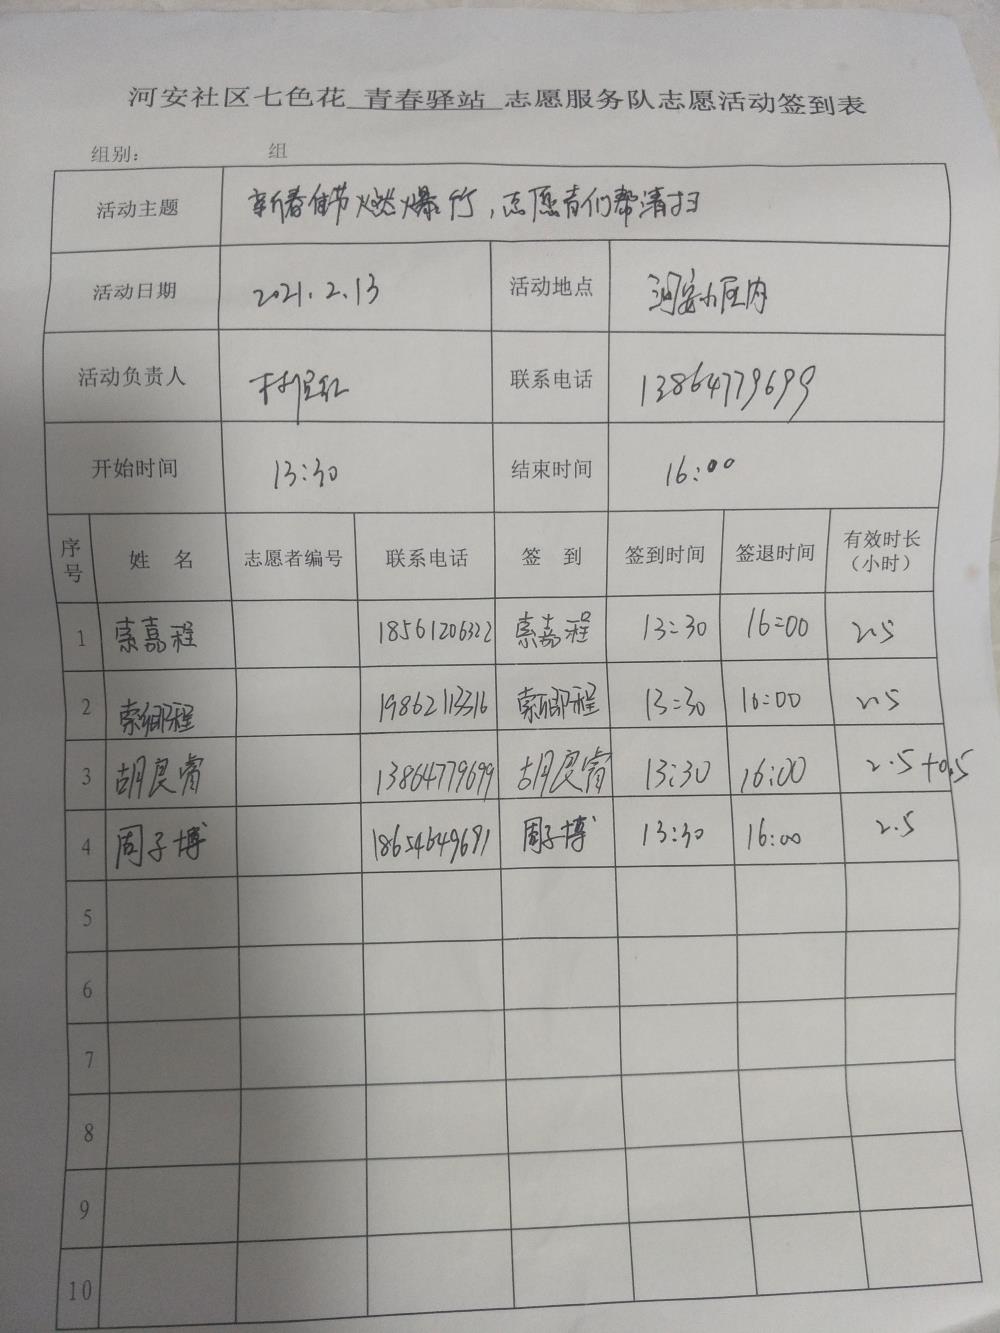 河安社区七色花 青春驿站 志愿服务队志愿活动签到表
组别： 组
活动主题 新春佳节燃爆竹，志愿者们帮清扫
活动日期 2021.2.13 活动地点 河安小区内
活动负责人 联系电话 13864779699
开始时间 13:30 结束时间 16:00
序号 姓 名 志愿者编号 联系电话 签 到 签到时间 签退时间 有效时长（小时）
1 索嘉程 18561206322 索嘉程 13:30 16:00 2.5
2 索卿程 19862113316 索卿程 13:30 16:00 2.5
3 胡良睿 13864779699 胡良睿 13:30 16:00 2.5+0.5
4 周子博 18654649691 周子博 13:30 16:00 2.5
5
6
7
8
9
10